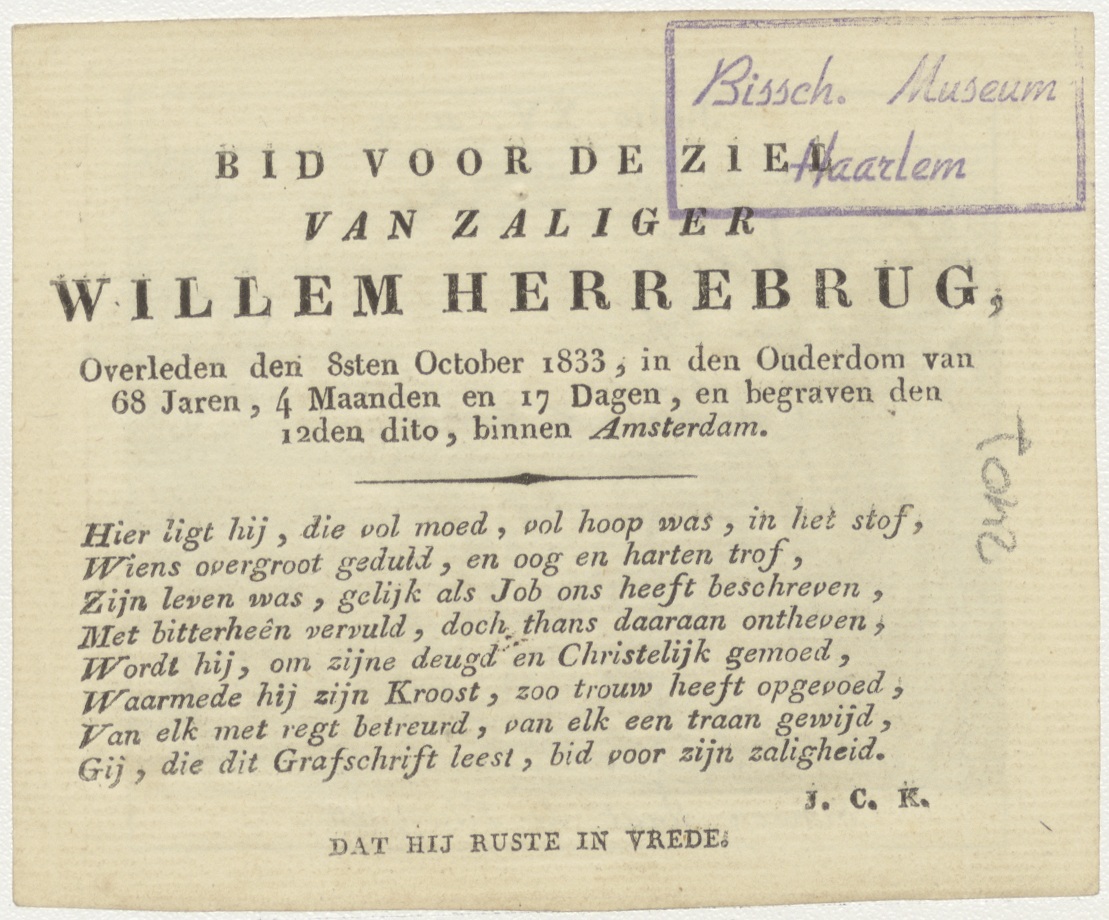 Bissch. Museum
Haarlem
BID VOOR DE ZIEL
VAN ZALIGER
WILLEM HERREBRUG,
Overleden den 8sten October 1833, in den Ouderdom van
68 Jaren, 4 Maanden en 17 Dagen, en begraven den
12den dito, binnen Amsterdam.
Hier ligt hij, die vol moed, vol hoop was, in het stof,
Wiens overgroot geduld, en oog en harten trof,
Zijn leven was, gelijk als Job ons heeft beschreven,
Met bitterheên vervuld, doch thans daaraan ontheven,
Wordt hij, om zijne deugd en Christelijk gemoed,
Waarmede hij zijn Kroost, zoo trouw heeft opgevoed,
Van elk met regt betreurd, van elk een traan gewijd,
Gij, die dit Grafschrift leest, bid voor zijn zaligheid.
J. C. K.
DAT HIJ RUSTE IN VREDE.